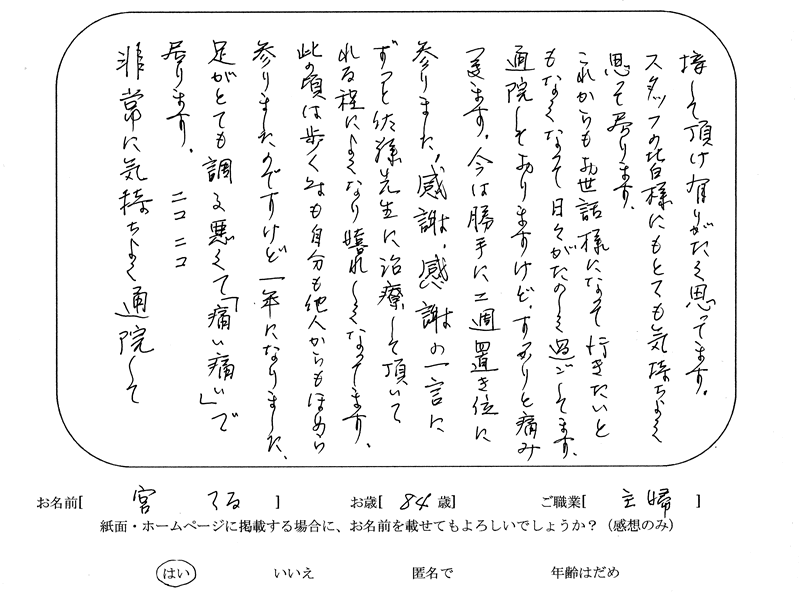 非常に気持ちよく通院して
居ります。 ニコニコ
足がとても調子悪くて「痛い痛い」で
参りましたのですけど一年になりました、
此の頃は歩く も自分も他人からもほめら
れる程によくなり嬉しくなってます。
ずっと 先生に治療して頂いて
参りました、感謝、感謝の一言に
つきます。今は勝手に二週置き位に
通院しておりますけど、すっかりと痛み
もなくなって日々がたのしく過ごしてます。
これからもお世話様になって行きたいと
思って居ります。
スタッフの皆様にもとても気持ちよく
接して頂け有りがたく思ってます。
お名前[ 宮 てる ] お歳[ 84 歳] ご職業[ 主婦 ]
紙面・ホームページに掲載する場合に、お名前を載せてもよろしいでしょうか？（感想のみ）
はい いいえ 匿名で 年齢はだめ